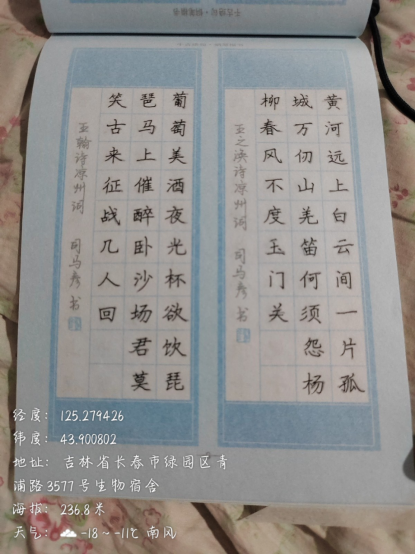 黄河远上白云间一片孤
城万仞山羌笛何须怨杨
柳春风不度玉门关
王之涣诗凉州词 司马彦书
葡萄美酒夜光杯欲饮琵
琶马上催醉卧沙场君莫
笑古来征战几人回
王翰诗凉州词 司马彦书
经度: 125.279426
纬度: 43.900802
地址: 吉林省长春市绿园区青
浦路3577号生物宿舍
海拔: 236.8米
天气: -18~-11℃ 南风